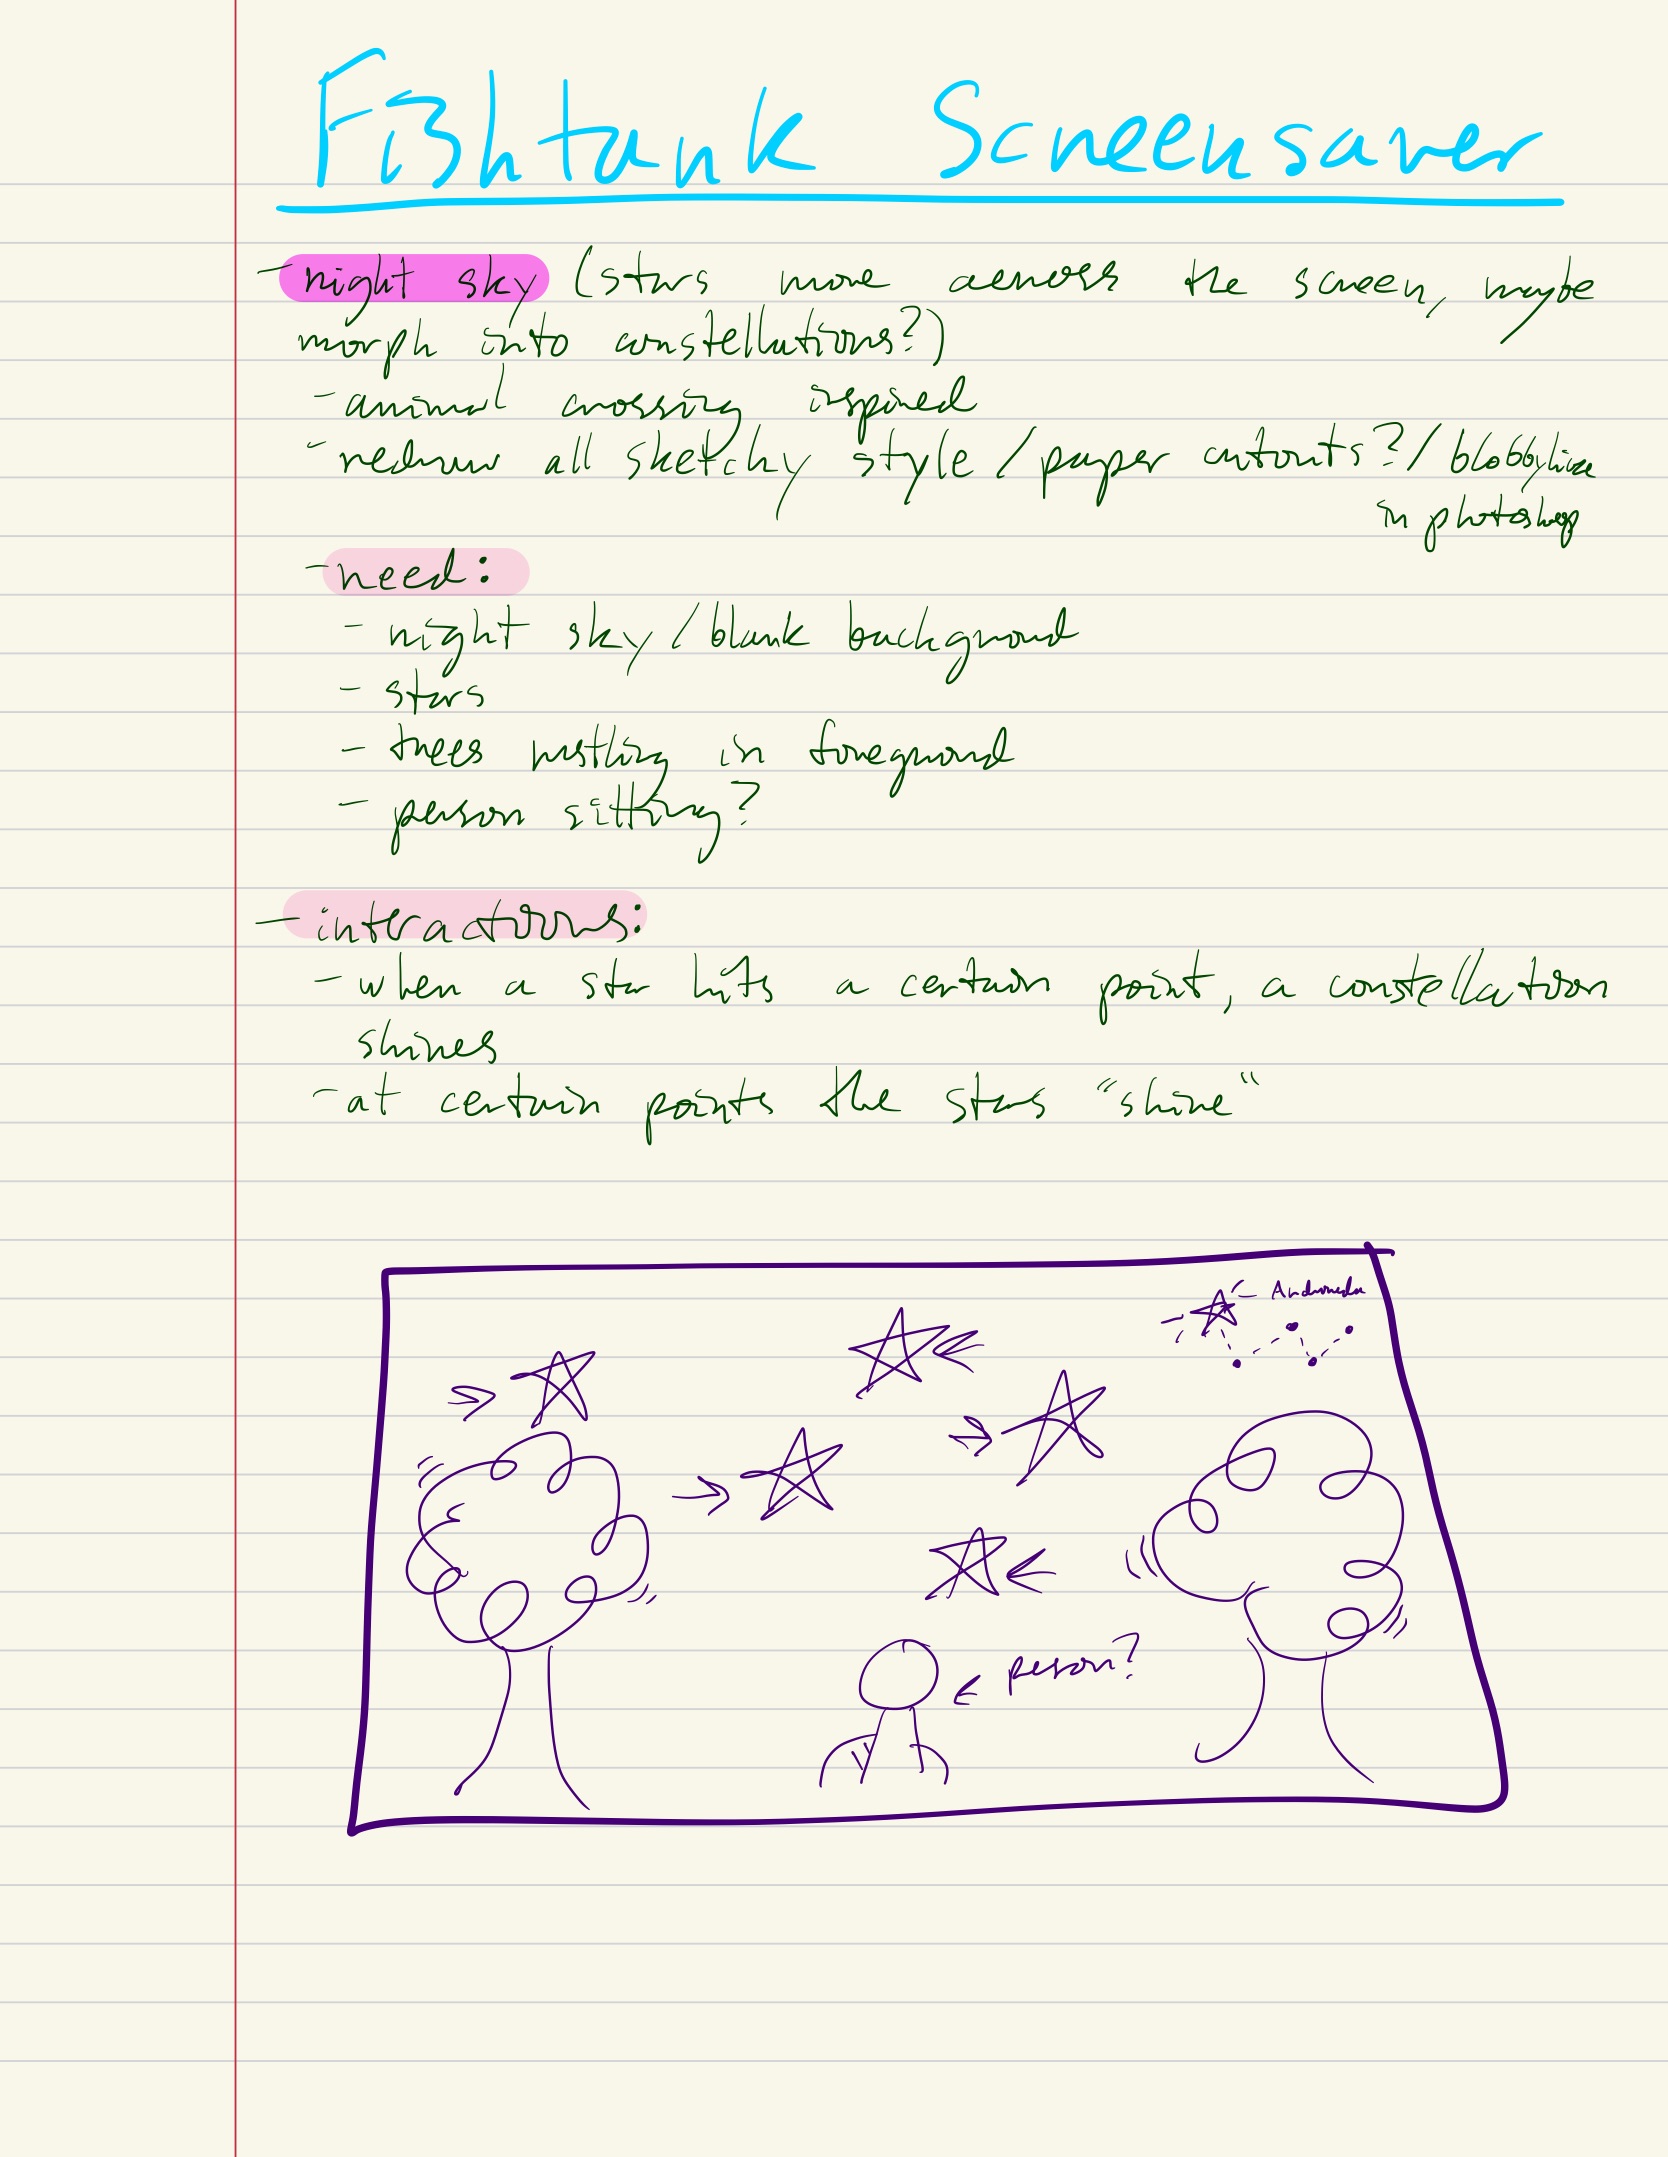 Fishtank Screensaver
- night sky (stars move across the screen, maybe
morph into constellations?)
- animal crossing inspired
- redraw all sketchy style / paper cutouts? / blobbyline
in photoshop
- need:
- night sky / blank background
- stars
- trees rustling in foreground
- person sitting?
- interactions:
- when a star hits a certain point, a constellation
shines
- at certain points the stars "shine"
Andromeda
person?